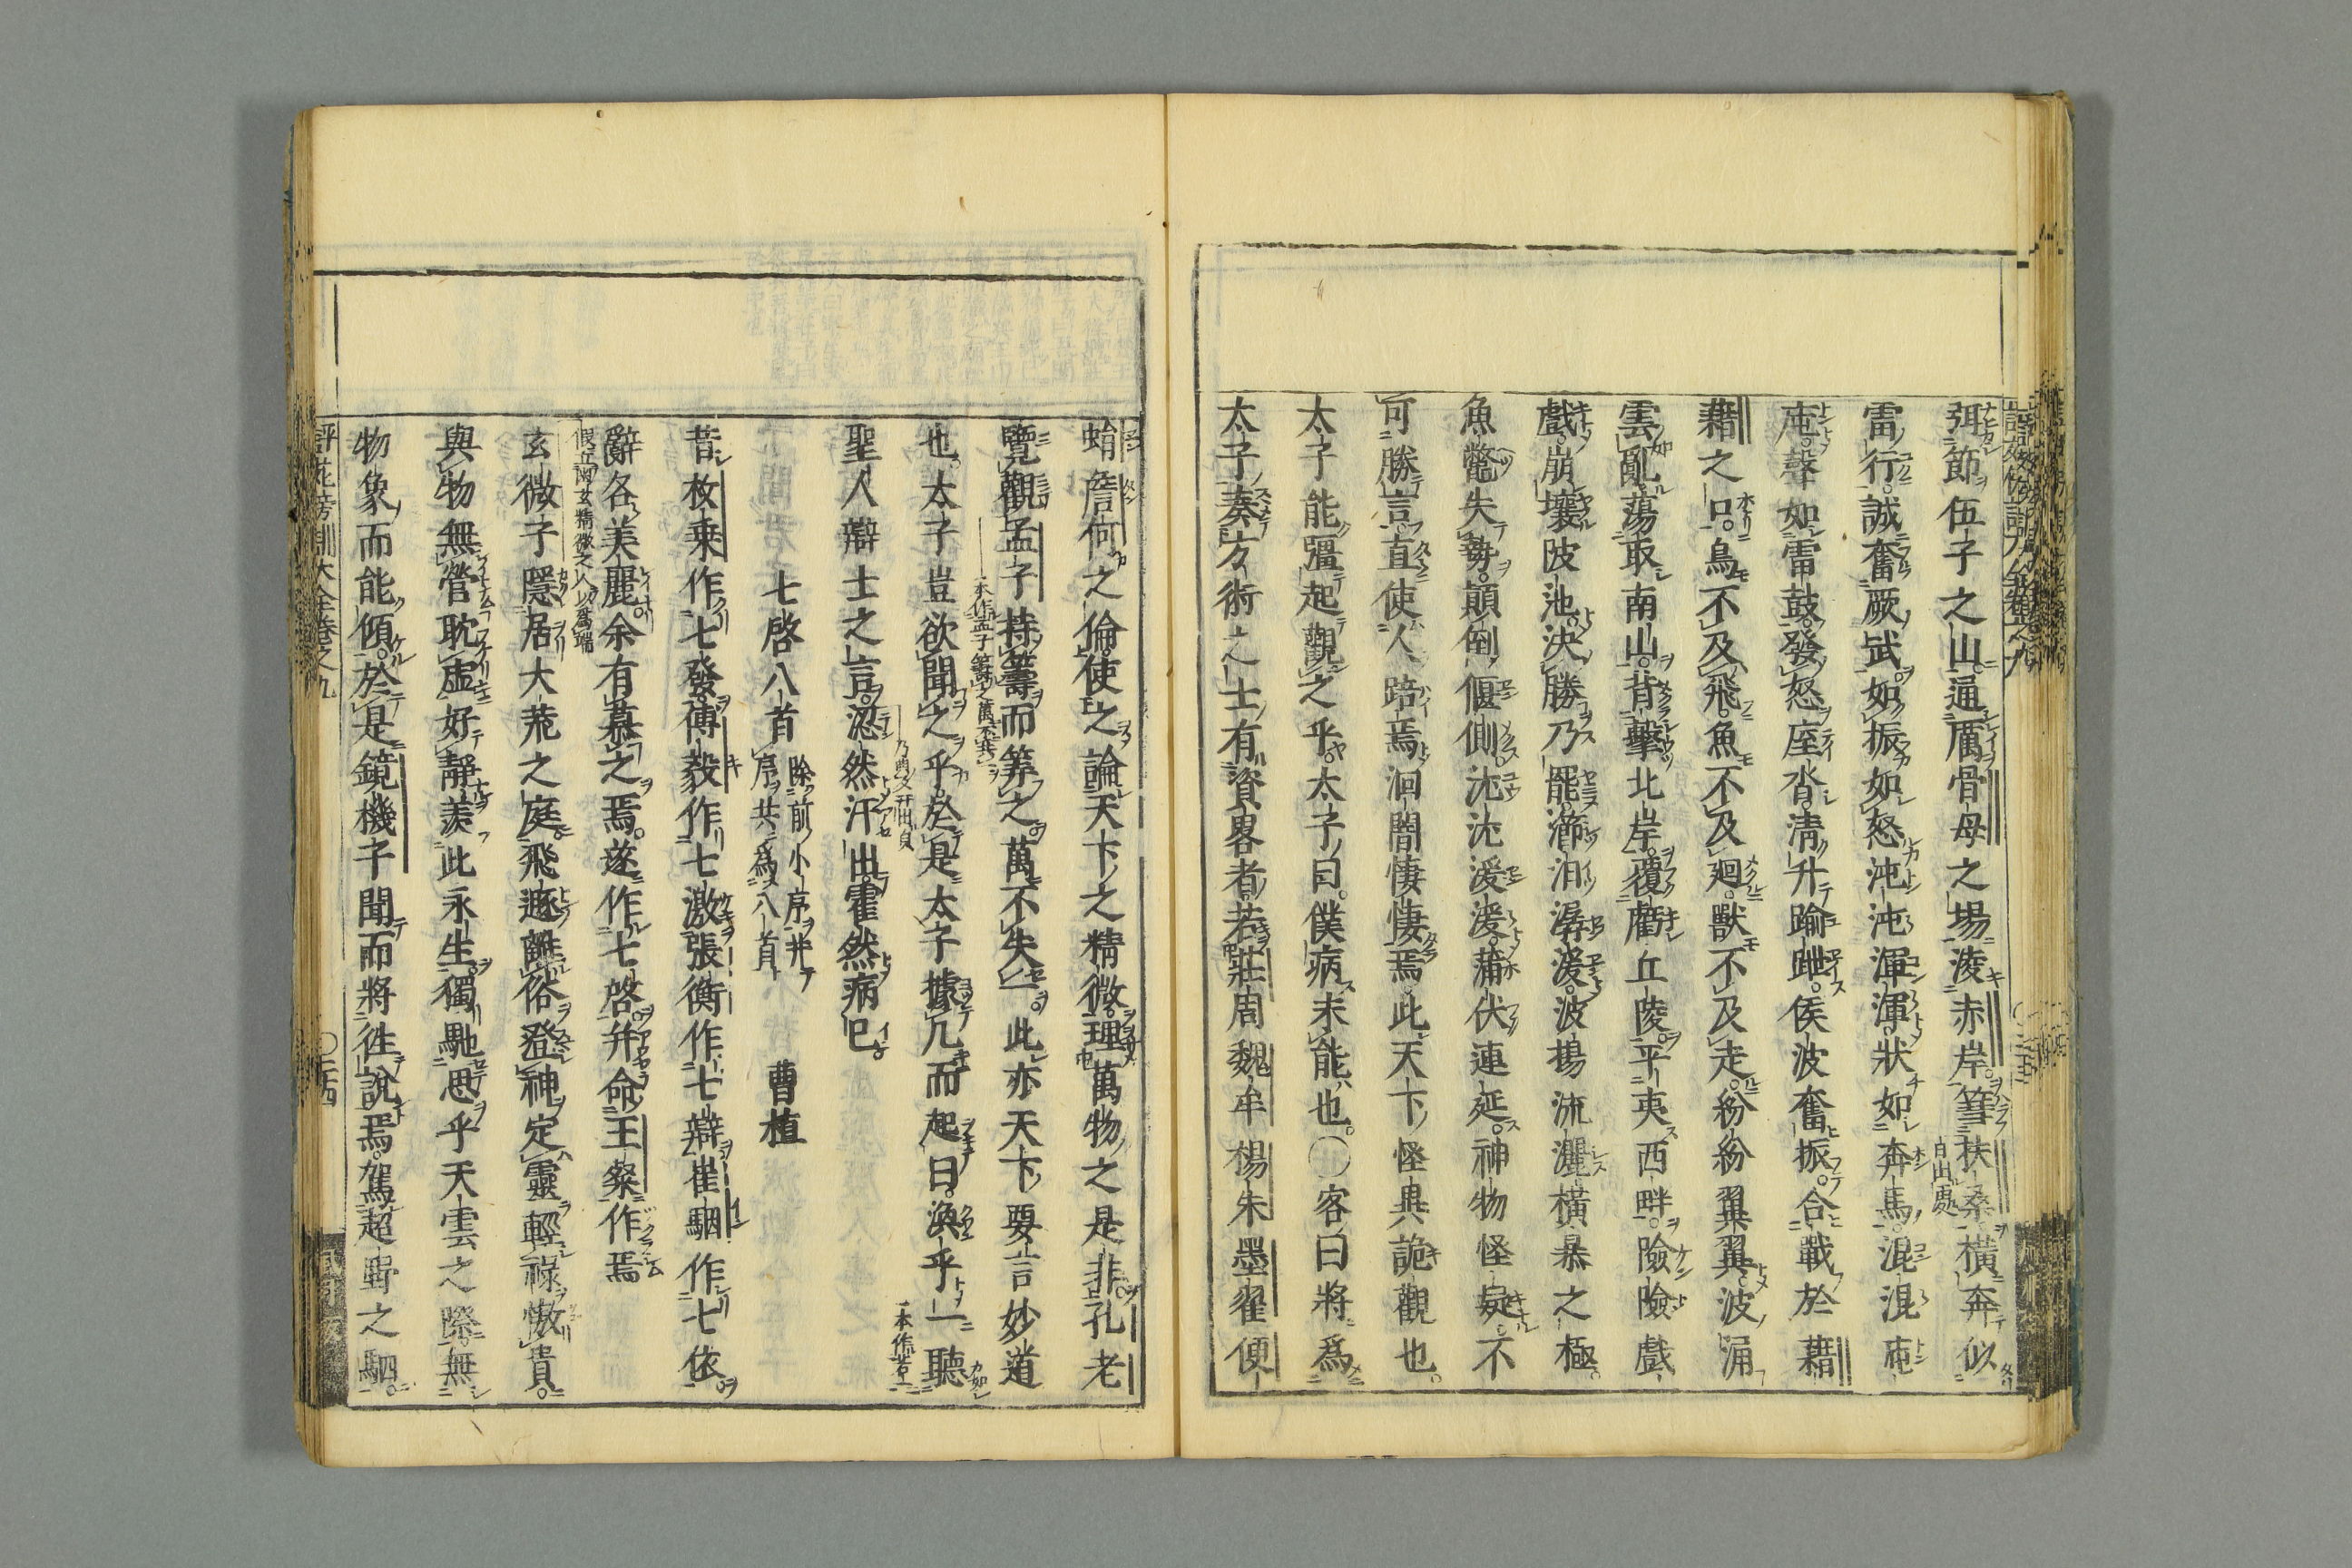 弭節伍子之山。通厲骨母之場。凌赤岸。篲扶桑。橫奔似
雷行。誠奮厥武。如振如怒。沌沌渾渾。狀如奔馬。混混庉
庉。聲如雷鼓。發怒庢沓。淸升踰跇。侯波奮振。合戰於藉
藉之口。鳥不及飛。魚不及廻。獸不及走。紛紛翼翼。波涌
雲亂。蕩取南山。背擊北岸。覆虧丘陵。平夷西畔。險險戲
戲。崩壞陂池。決勝乃罷。瀄汩潺湲。波揚流灑。橫暴之極。
魚鼈失勢。顚倒偃側。沋沋湲湲。蒲伏連延。神物怪疑。不
可勝言。直使人踣焉。洄闇悽愴焉。此天下怪異詭觀也。
太子能彊起觀之乎。太子曰。僕病未能也。〇客曰將爲
太子奏方術之士有資畧者。若莊周魏牟楊朱墨翟便
蜎詹何之倫。使之論天下之精微。理萬物之是非。孔老
覽觀。孟子持籌而筭之。萬不失一。此亦天下要言妙道
也。太子豈欲聞之乎。於是太子據几而起曰。渙乎一聽
聖人辯士之言。涊然汗出。霍然病已。
七啓八首 除前小序并序共爲八首 曹植
昔枚乘作七發。傅毅作七激。張衡作七辯。崔駰作七依。
辭各美麗。余有慕之焉。遂作七啓。并命王粲作焉
玄微子隱居大荒之庭。飛遯離俗。澄神定靈。輕祿慠貴。
與物無營。耽虛好靜。羨此永生。獨馳思乎天雲之際。無
物象而能傾。於是鏡機子聞而將往說焉。駕超野之駟。